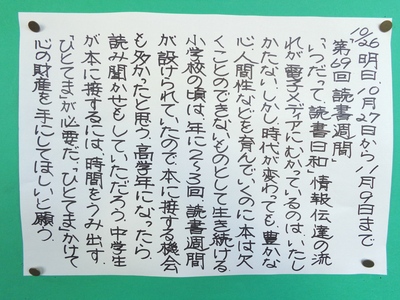 10/26 明日、10月27日から11月9日まで
「第69回 読書週間」
「いつだって、読書日和」情報伝達の流
れが電子メディアにむかっているのは、いたし
かたない。しかし、時代が変わっても、豊かな
心、人間性などを育んでいくのに本は欠
くことのできないものとして生き続ける。
小学校の頃は、年に2、3回 読書週間
が設けられていたので、本に接する機会
も多かったと思う。高学年になったら、
読み聞かせもしていただろう。中学生
が本に接するには、時間をうみ出す
「ひとてま」が必要だ。「ひとてま」かけて
心の財産を手にしてほしいと願う。